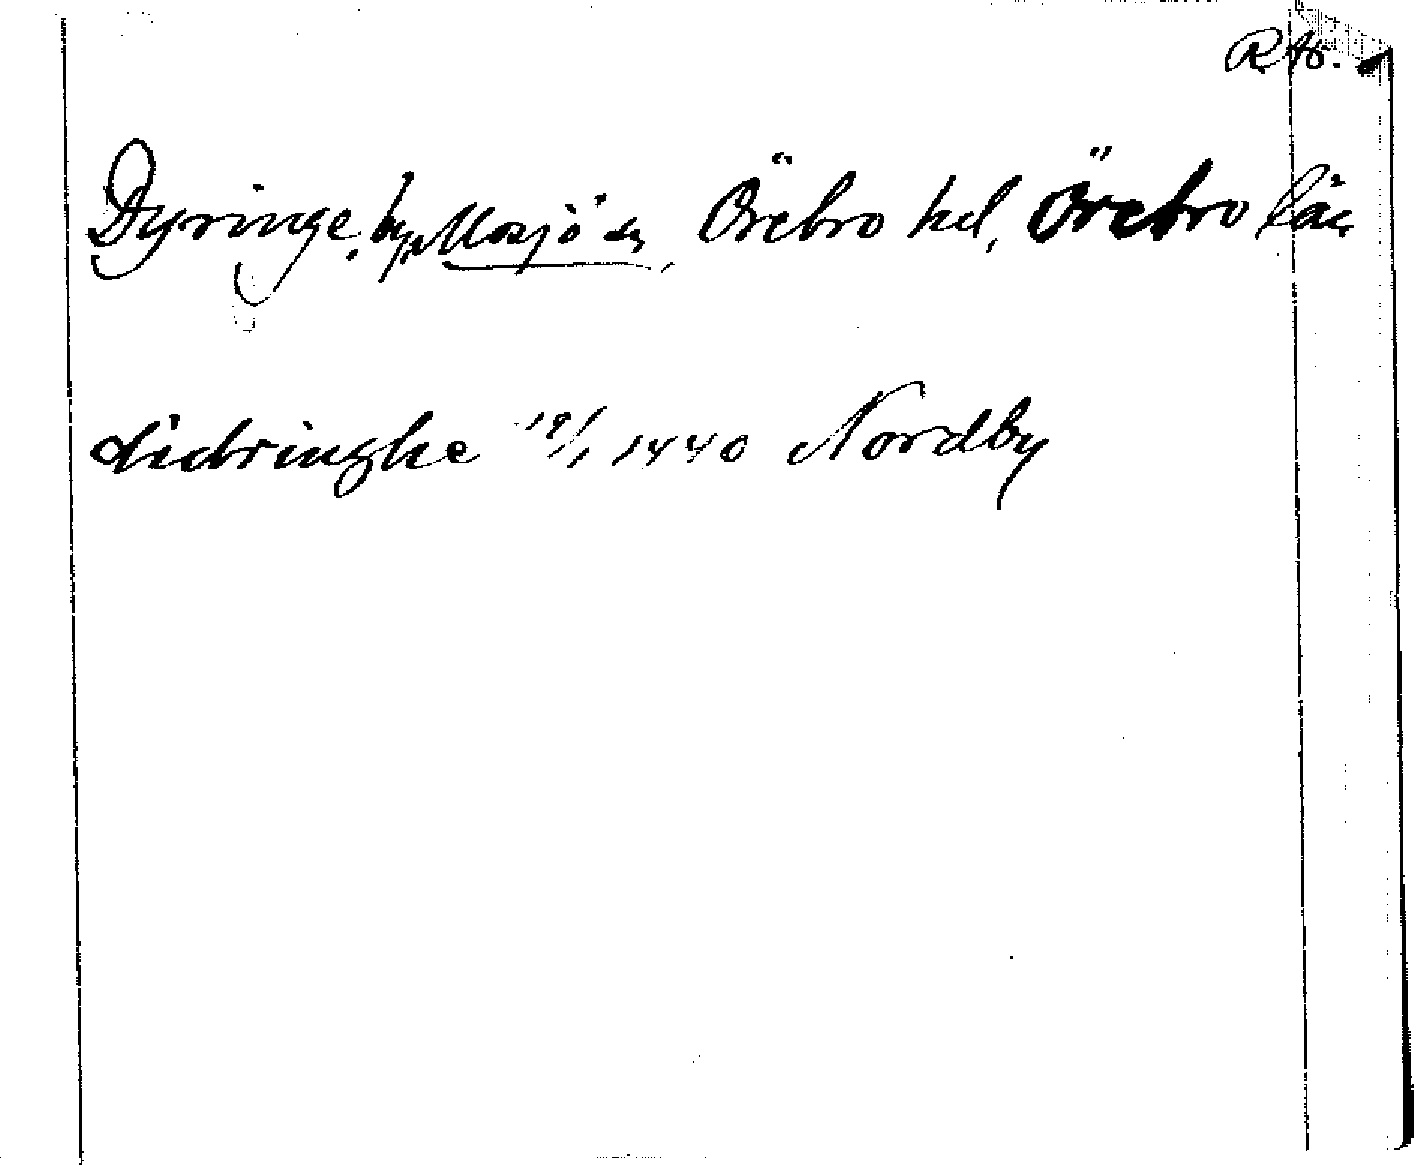 RAö.
Dyringe, by, Mosjö sn, Örebro hd, Örebro län
didringhe 19/1 1440 Nordby